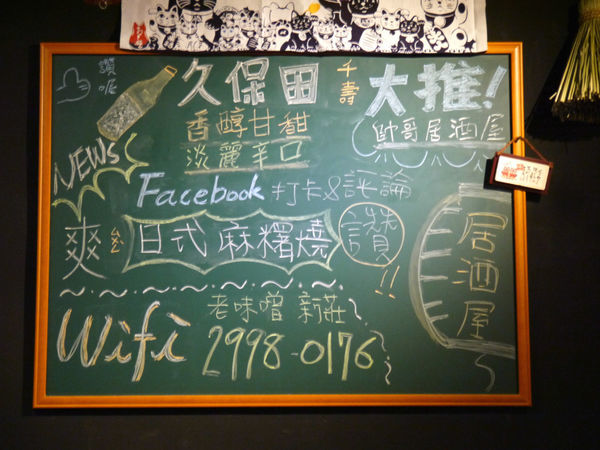 讚喔
久保田
千壽
大推!
香醇甘甜
淡麗辛口
帥哥居酒屋
NEWS
Facebook 打卡&評論
爽 ㄠ
日式麻糬燒
讚!!
居酒屋
老味噌 新莊
Wifi 2998-0176